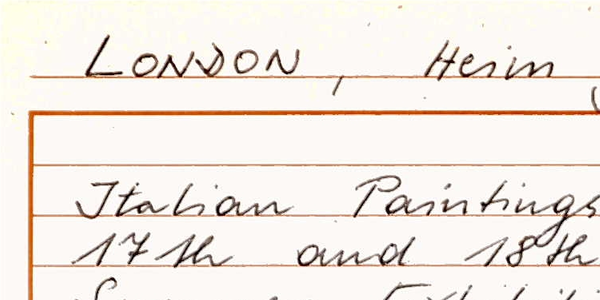 LONDON, Heim
Italian Paintings
17th and 18th